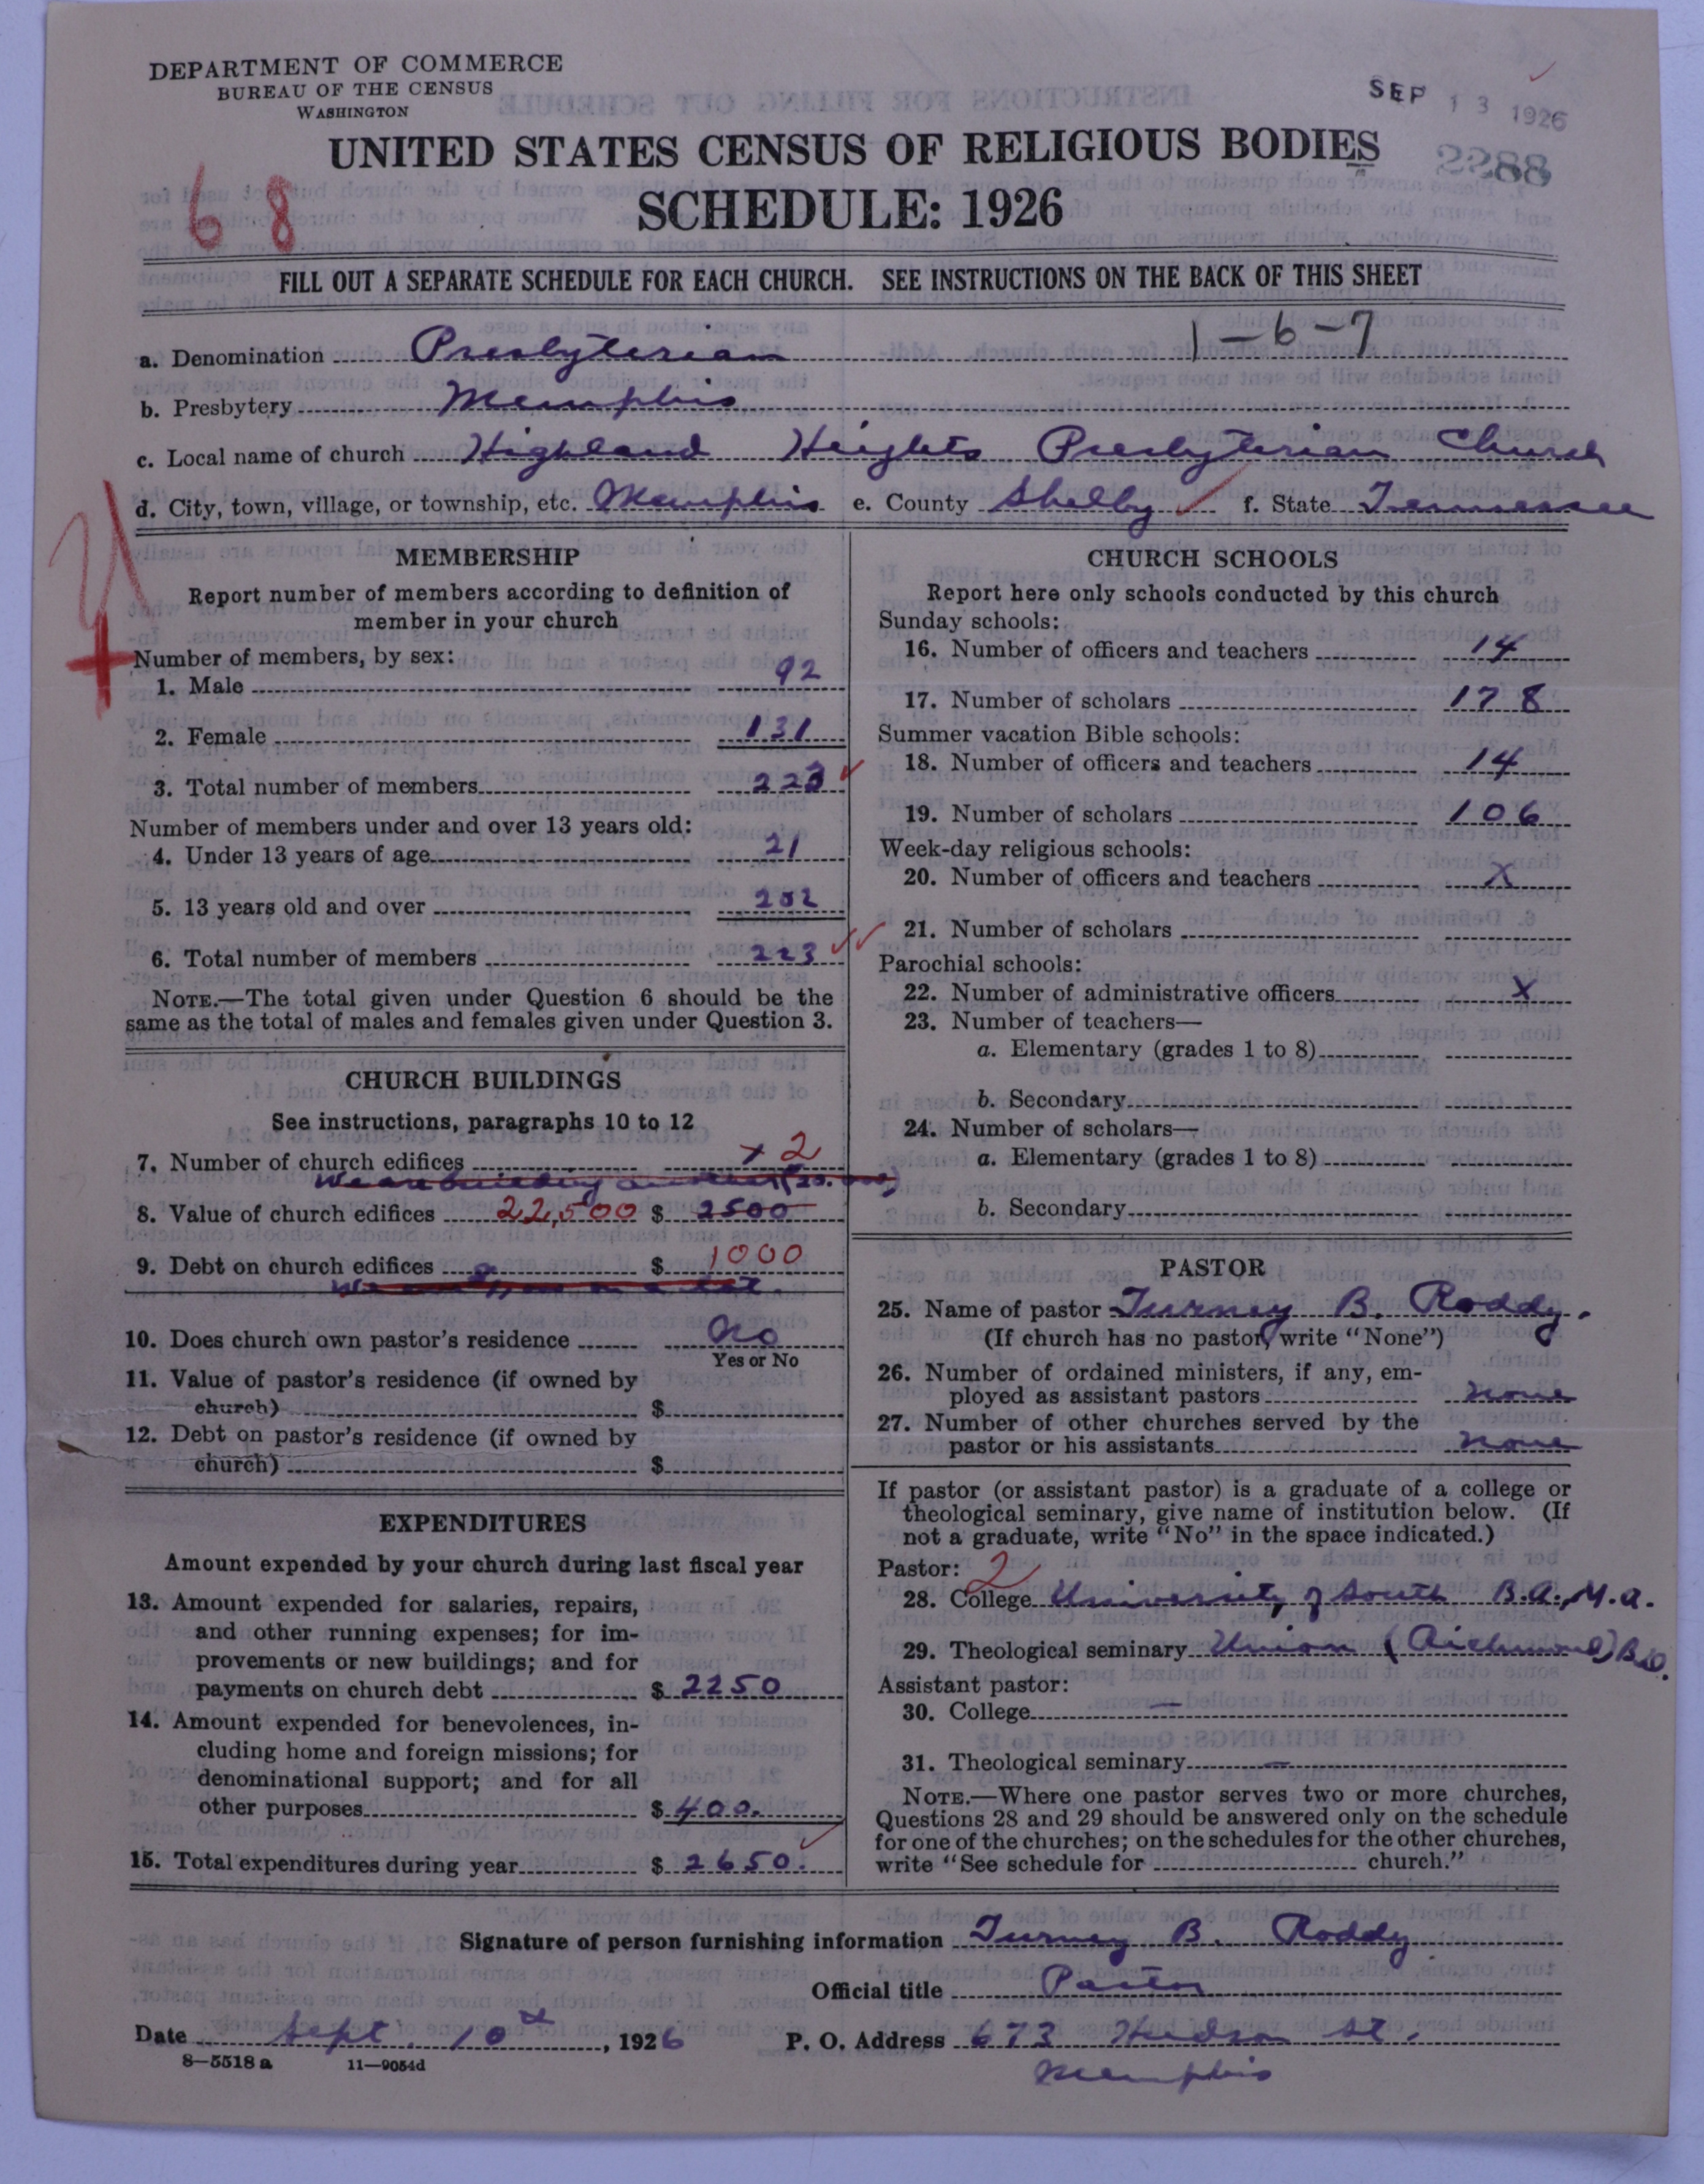 DEPARTMENT OF COMMERCE
BUREAU OF THE CENSUS
WASHINGTON
SEP 13 1926
UNITED STATES CENSUS OF RELIGIOUS BODIES
2288
SCHEDULE: 1926
68
FILL OUT A SEPARATE SCHEDULE FOR EACH CHURCH. SEE INSTRUCTIONS ON THE BACK OF THIS SHEET
1-6-7
a. Denomination Presbyterian
b. Presbytery Memphis
c. Local name of church Highland Heights Presbyterian Church
d. City, town, village, or township, etc. Memphis e. County Shelby f. State Tennessee
MEMBERSHIP
Report number of members according to definition of
member in your church
Number of members, by sex:
1. Male 92
2. Female 131
3. Total number of members 223
Number of members under and over 13 years old:
4. Under 13 years of age 21
5. 13 years old and over 202
6. Total number of members 223
NOTE.—The total given under Question 6 should be the
same as the total of males and females given under Question 3.
CHURCH BUILDINGS
See instructions, paragraphs 10 to 12
7. Number of church edifices 2
We are building another
8. Value of church edifices 22,500 $ 2500
9. Debt on church edifices $ 1000
on a lot.
10. Does church own pastor's residence No
Yes or No
11. Value of pastor's residence (if owned by
church) $
12. Debt on pastor's residence (if owned by
church) $
EXPENDITURES
Amount expended by your church during last fiscal year
13. Amount expended for salaries, repairs,
and other running expenses; for im-
provements or new buildings; and for
payments on church debt $ 2250
14. Amount expended for benevolences, in-
cluding home and foreign missions; for
denominational support; and for all
other purposes $ 400.
15. Total expenditures during year $ 2650.
CHURCH SCHOOLS
Report here only schools conducted by this church
Sunday schools:
16. Number of officers and teachers 14
17. Number of scholars 178
Summer vacation Bible schools:
18. Number of officers and teachers 14
19. Number of scholars 106
Week-day religious schools:
20. Number of officers and teachers X
21. Number of scholars
Parochial schools:
22. Number of administrative officers X
23. Number of teachers—
a. Elementary (grades 1 to 8)
b. Secondary
24. Number of scholars—
a. Elementary (grades 1 to 8)
b. Secondary
PASTOR
25. Name of pastor Turney B. Roddy.
(If church has no pastor, write "None")
26. Number of ordained ministers, if any, em-
ployed as assistant pastors none
27. Number of other churches served by the
pastor or his assistants none
If pastor (or assistant pastor) is a graduate of a college or
theological seminary, give name of institution below. (If
not a graduate, write "No" in the space indicated.)
Pastor: 2
28. College University of South B.A., M.A.
29. Theological seminary Union (Richmond) B.D.
Assistant pastor:
30. College —
31. Theological seminary —
NOTE.—Where one pastor serves two or more churches,
Questions 28 and 29 should be answered only on the schedule
for one of the churches; on the schedules for the other churches,
write "See schedule for church."
Signature of person furnishing information Turney B. Roddy
Official title Pastor
Date Sept. 10th, 1926 P. O. Address 673 Hudson St.
Memphis
8—5518 a 11—9054d